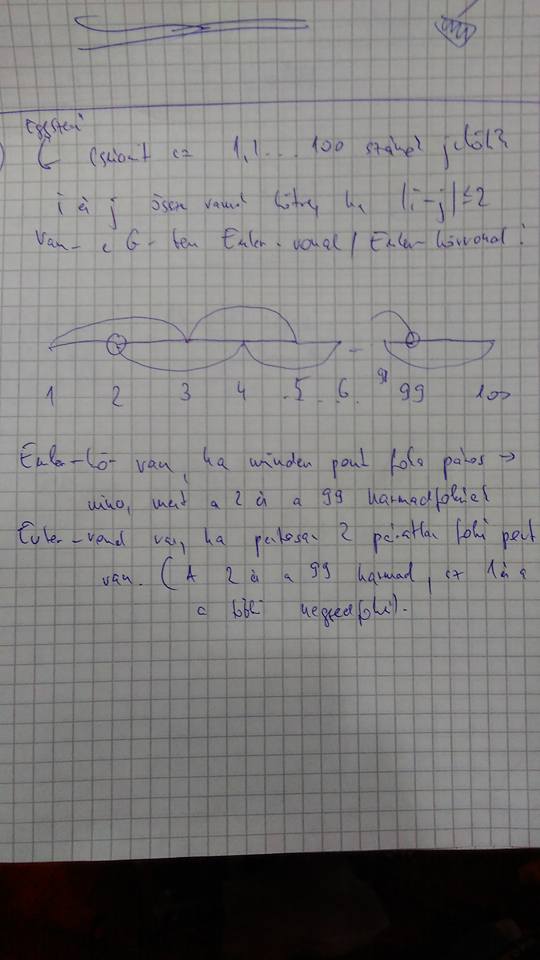 Egyszerű
G csúcsait az 1,2...100 számok jelölik
i és j össze vannak kötve, ha |i-j|≤2
Van-e G-ben Euler-vonal / Euler-körvonal?
1 2 3 4 5 6 98 99 100
Euler-kör van, ha minden pont foka páros →
nincs, mert a 2 és a 99 harmadfokúak
Euler-vonal van, ha pontosan 2 páratlan fokú pont
van. (A 2 és a 99 harmad, az 1 és a
a többi negyedfokú).